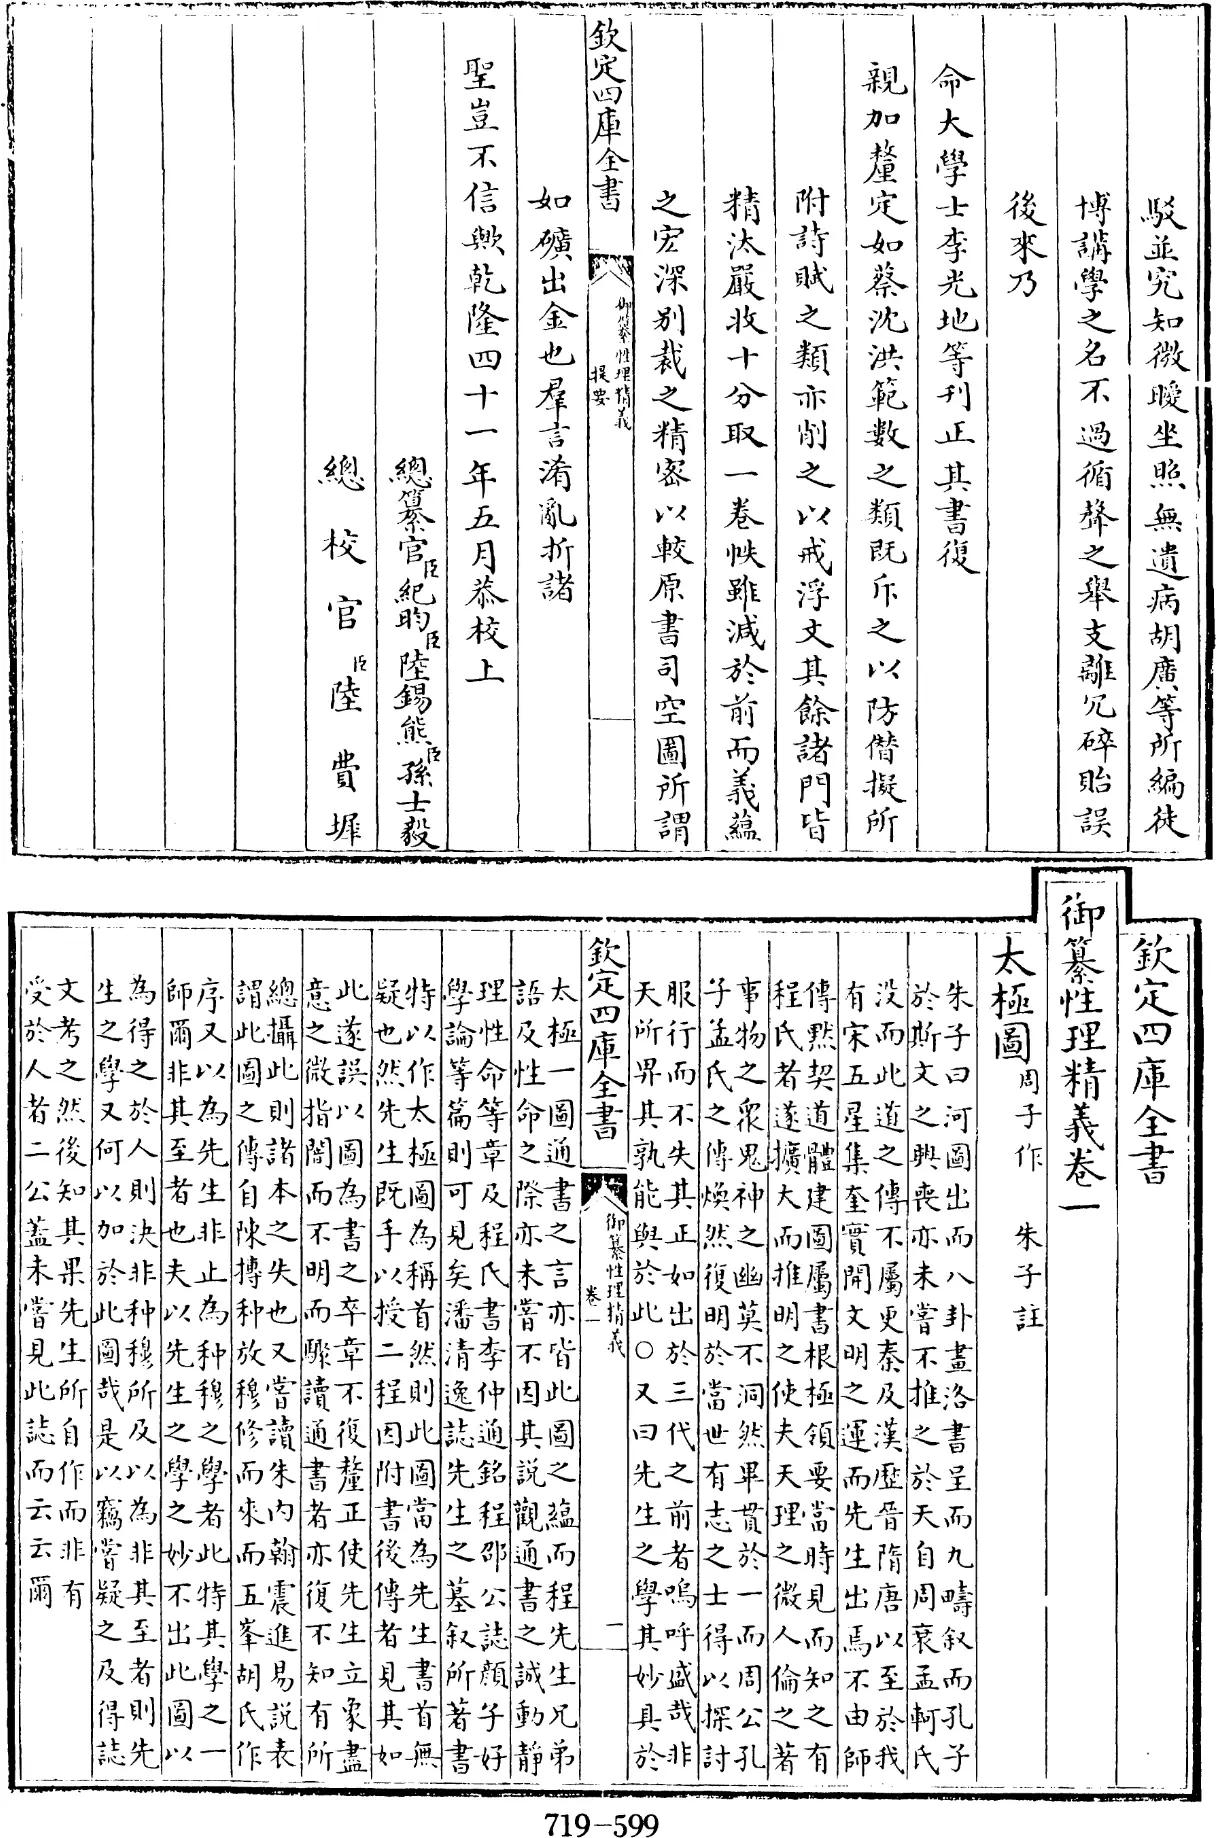 駁並究知微曖坐照無遺病胡廣等所編徒
博講學之名不過循聲之舉支離冗碎貽誤
後來乃
命大學士李光地等刊正其書復
親加釐定如蔡沈洪範數之類既斥之以防僭擬所
附詩賦之類亦削之以戒浮文其餘諸門皆
精汰嚴收十分取一卷帙雖減於前而義蘊
之宏深別裁之精密以較原書司空圖所謂
欽定四庫全書
御纂性理精義
提要
如礦出金也羣言淆亂折諸
聖豈不信歟乾隆四十一年五月恭校上
總纂官臣紀昀臣陸錫熊臣孫士毅
總校官臣陸費墀
欽定四庫全書
御纂性理精義卷一
太極圖周子作 朱子註
朱子曰河圖出而八卦畫洛書呈而九疇叙而孔子
於斯文之興喪亦未嘗不推之於天自周衰孟軻氏
没而此道之傳不屬更秦及漢歷晉隋唐以至於我
有宋五星集奎實開文明之運而先生出焉不由師
傳黙契道體建圖屬書根極領要當時見而知之有
程氏者遂擴大而推明之使夫天理之微人倫之著
事物之衆鬼神之幽莫不洞然畢貫於一而周公孔
子孟氏之傳煥然復明於當世有志之士得以探討
服行而不失其正如出於三代之前者嗚呼盛哉非
天所畀其孰能與於此○又曰先生之學其妙具於
欽定四庫全書
御纂性理精義
卷一
一
太極一圖通書之言亦皆此圖之蘊而程先生兄弟
語及性命之際亦未嘗不因其說觀通書之誠動靜
理性命等章及程氏書李仲通銘程邵公誌顏子好
學論等篇則可見矣潘清逸誌先生之墓叙所著書
特以作太極圖為稱首然則此圖當為先生書首無
疑也然先生既手以授二程因附書後傳者見其如
此遂誤以圖為書之卒章不復釐正使先生立象盡
意之微指闇而不明而驟讀通書者亦復不知有所
總攝此則諸本之失也又嘗讀朱内翰震進易說表
謂此圖之傳自陳摶种放穆修而來而五峯胡氏作
序又以為先生非止為种穆之學者此特其學之一
師爾非其至者也夫以先生之學之妙不出此圖以
為得之於人則決非种穆所及以為非其至者則先
生之學又何以加於此圖哉是以竊嘗疑之及得誌
文考之然後知其果先生所自作而非有
受於人者二公蓋未嘗見此誌而云云爾
719-599